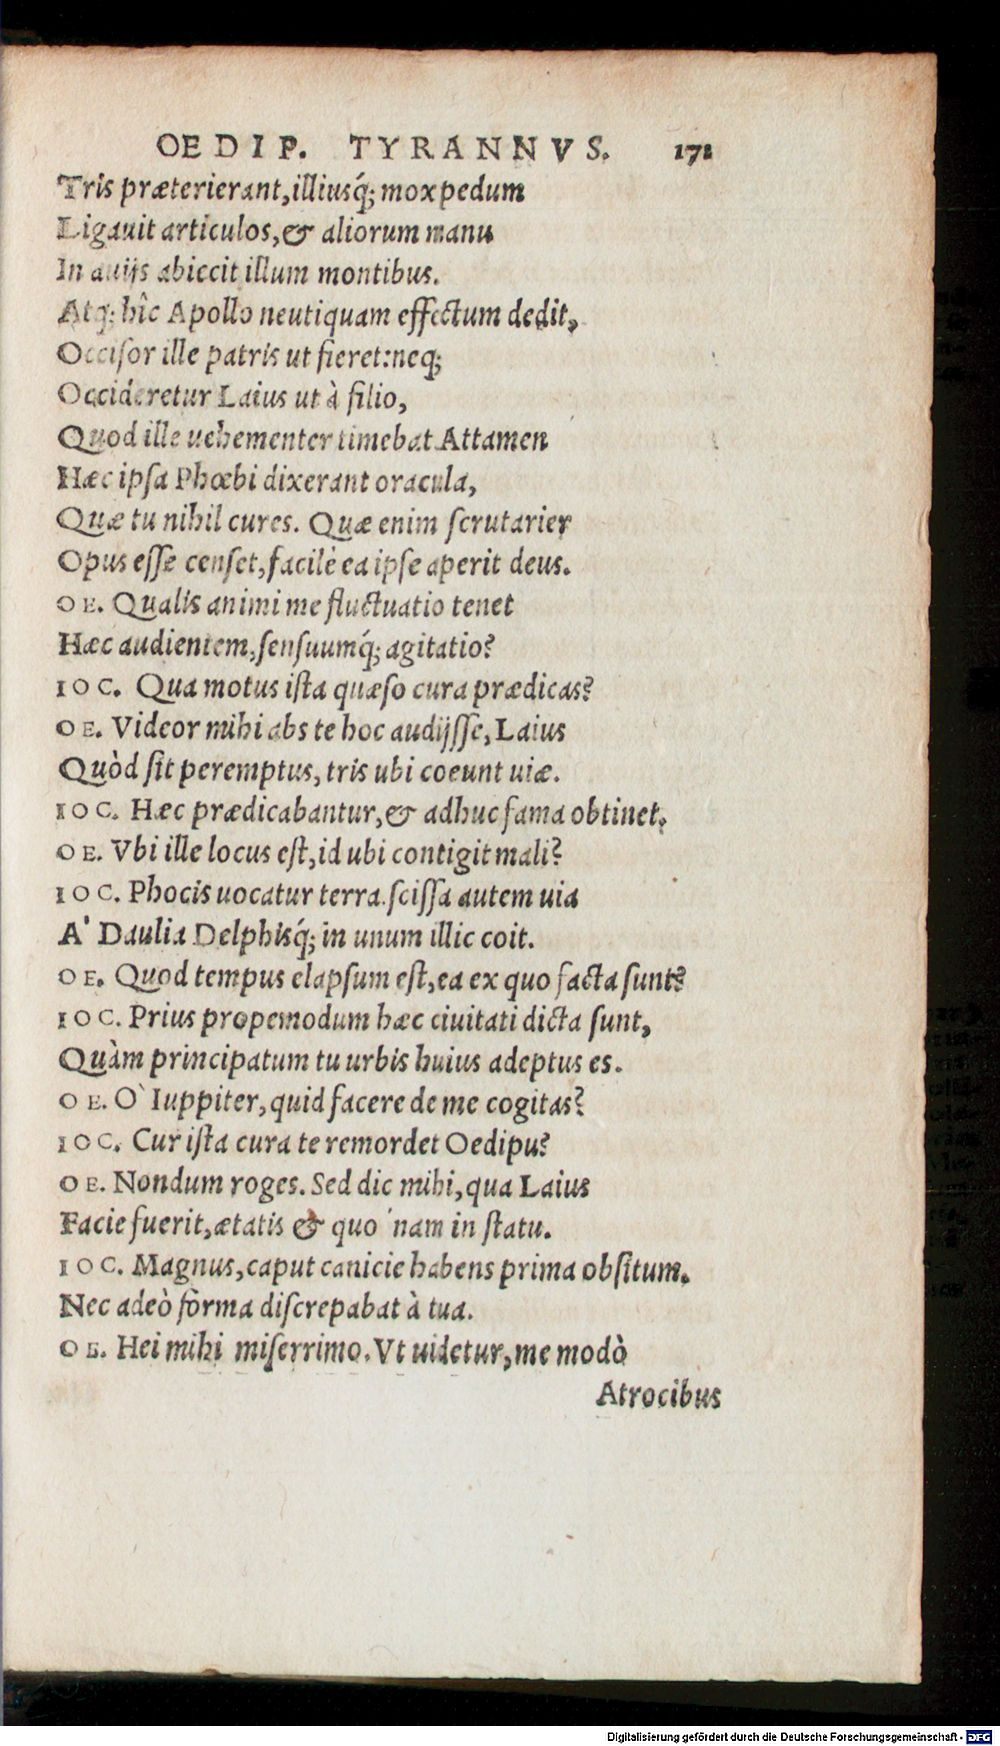 OEDIP. TYRANNVS. 171
Tris præterierant, illiusq́; mox pedum
Ligauit articulos, & aliorum manu
In auijs abiecit illum montibus.
Atq; hîc Apollo neutiquam effectum dedit,
Occiſor ille patris ut fieret: neq;
Occideretur Laius ut à filio,
Quod ille uehementer timebat. Attamen
Hæc ipſa Phœbi dixerant oracula,
Quæ tu nihil cures. Quæ enim ſcrutarier
Opus eſſe cenſet, facilè ea ipſe aperit deus.
OE. Qualis animi me fluctuatio tenet
Hæc audientem, ſenſuumq́; agitatio?
IOC. Qua motus iſta quæſo cura prædicas?
OE. Videor mihi abs te hoc audijſſe, Laius
Quòd ſit peremptus, tris ubi coeunt uiæ.
IOC. Hæc prædicabantur, & adhuc fama obtinet.
OE. Vbi ille locus eſt, id ubi contigit mali?
IOC. Phocis uocatur terra. ſciſſa autem uia
A' Daulia Delphisq́; in unum illic coit.
OE. Quod tempus elapſum eſt, ea ex quo facta ſunt?
IOC. Prius propemodum hæc ciuitati dicta ſunt,
Quàm principatum tu urbis huius adeptus es.
OE. O` Iuppiter, quid facere de me cogitas?
IOC. Cur iſta cura te remordet Oedipu?
OE. Nondum roges. Sed dic mihi, qua Laius
Facie fuerit, ætatis & quo 'nam in ſtatu.
IOC. Magnus, caput canicie habens prima obſitum.
Nec adeò forma diſcrepabat à tua.
OE. Hei mihi miſerrimo. Vt uidetur, me modò
Atrocibus
Digitalisierung gefördert durch die Deutsche Forschungsgemeinschaft - DFG